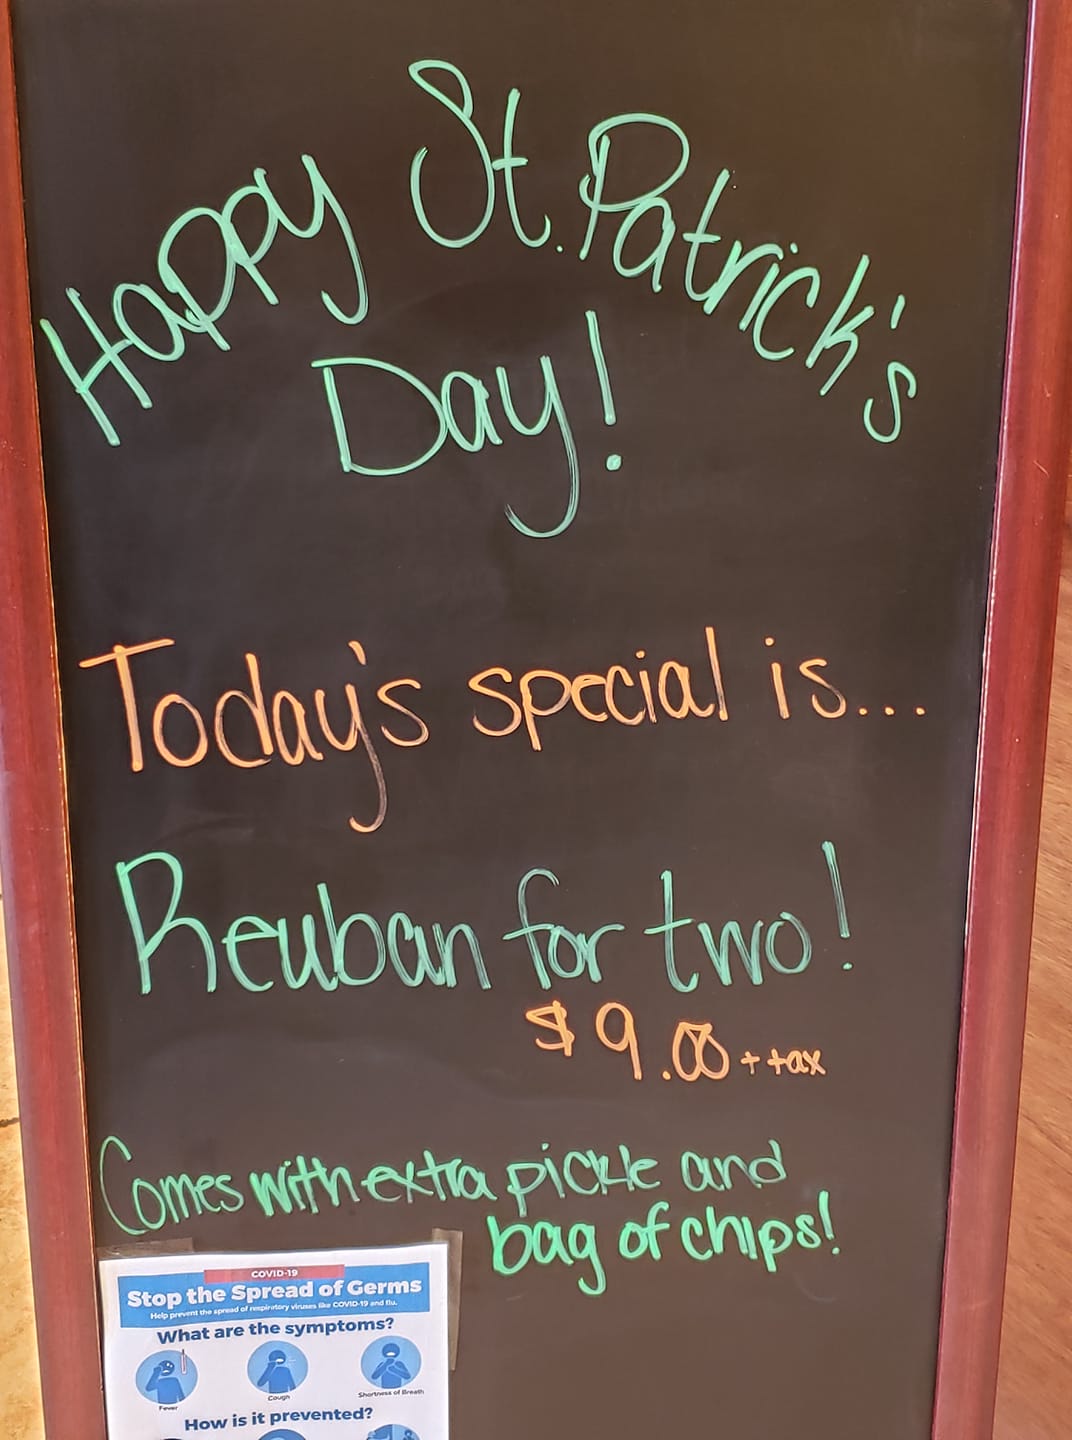 Happy St. Patrick's
Day!
Today's special is...
Reuban for two!
$9.00 + tax
Comes with extra pickle and
bag of chips!
COVID-19
Stop the Spread of Germs
Help prevent the spread of respiratory viruses like COVID-19 and flu.
What are the symptoms?
Fever Cough Shortness of Breath
How is it prevented?